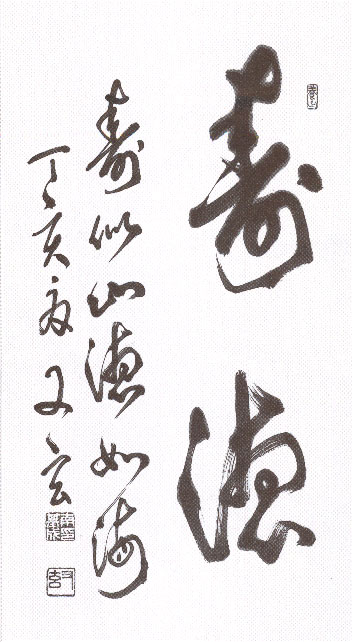 壽德
壽似山德如海
丁亥夏又玄